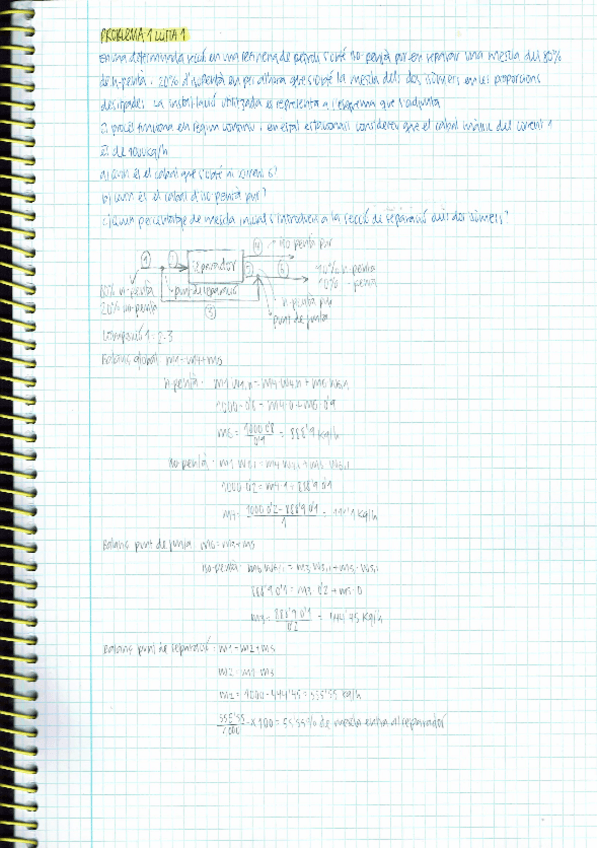 PROBLEMA 1 LLISTA 1
En una determinada secció en una refineria de petroli s'obté iso-pentà pur en separar una mescla del 80%
de n-pentà i 20% d'isopentà
la mescla dels dos isòmers en les proporcions
desitjades. La instal·lació utilitzada es representa a l'esquema que s'adjunta
El procés funciona en règim continu i en estat estacionari considereu que el cabal màssic del corrent 1
és de 1000 kg/h
a) Quin és el cabal que s'obté al corrent 6?
b) Quin és el cabal d'iso-pentà pur?
c) Quin percentatge de mescla inicial s'introdueix a la secció de separació dels dos isòmers?
4 iso pentà pur
1 2 separador 5 6
90% n-pentà
10% i-pentà
80% n-pentà
20% iso-pentà
punt de separació
n-pentà pur
3
punt de junta
Composició 1=2=3
Balanç global: m1=m4+m6
n-pentà: m1 w1,n = m4 w4,n + m6 w6,n
1000·0'8 = m4·0 + m6·0'9
m6 = 1000·0'8 / 0'9 = 888'9 kg/h
iso-pentà: m1 w1,i = m4 w4,i + m6 w6,i
1000·0'2 = m4·1 + 888'9·0'1
m4 = 1000·0'2 - 888'9·0'1 / 1 = 111'1 kg/h
Balanç punt de junta: m6=m3+m5
iso-pentà: m6 w6,i = m3 w3,i + m5 w5,i
888'9·0'1 = m3·0'2 + m5·0
m3 = 888'9·0'1 / 0'2 = 444'45 kg/h
Balanç punt de separació: m1=m2+m3
m2=m1-m3
m2=1000-444'45=555'55 kg/h
555'55 / 1000 ×100 = 55'55% de mescla entra al separador